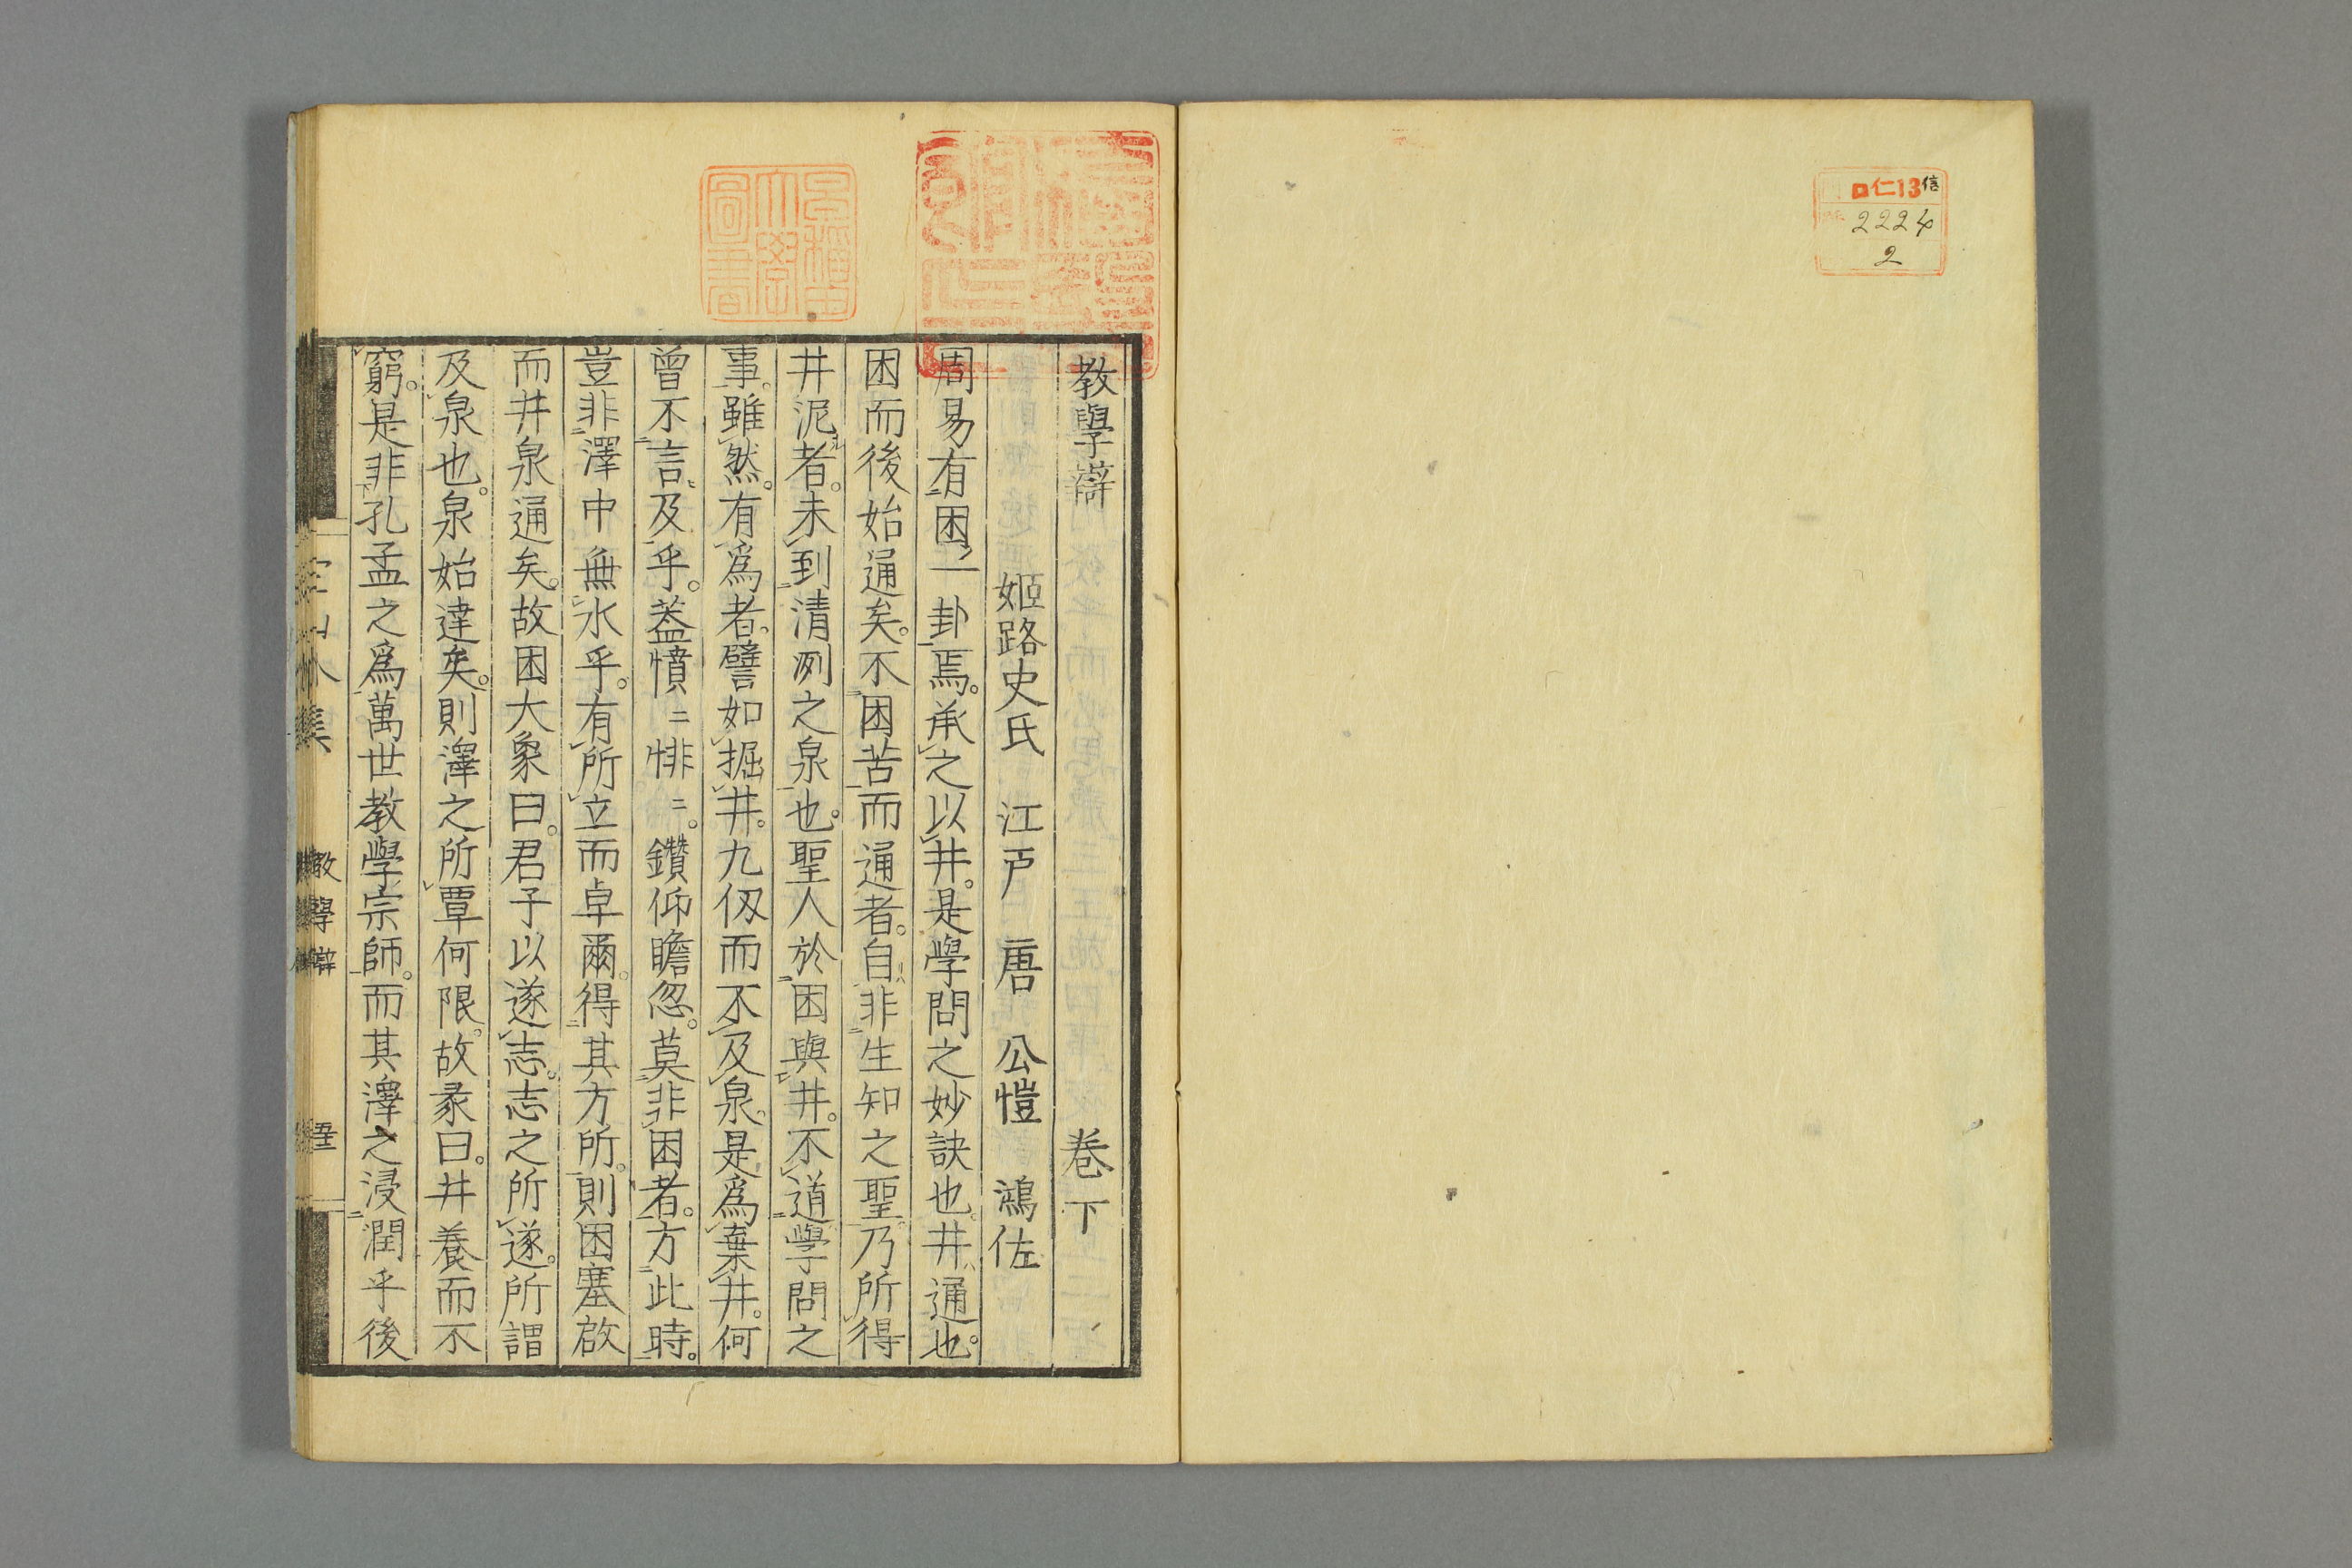 仁13 信
2224
2
教學辯 卷下
姬路史氏 江戶 唐 公愷 鴻佐
周易有困一卦焉。承之以井。是學問之妙訣也。井通也。
困而後始通矣。不困苦而通者。自非生知之聖。乃所得
井泥者。未到清冽之泉也。聖人於困與井。不道學問之
事。雖然。有爲者。譬如掘井。九仞而不及泉。是爲棄井。何
曾不言及乎。葢憤〻悱〻。鑽仰瞻忽。莫非困者。方此時。
豈非澤中無水乎。有所立而卓爾。得其方所。則困塞啟
而井泉通矣。故困大象曰。君子以遂志。志之所遂。所謂
及泉也。泉始達矣。則澤之所覃何限。故彖曰。井養而不
窮。是非孔孟之爲萬世教學宗師。而其澤之浸潤乎後
教學辯
早稻田大學圖書